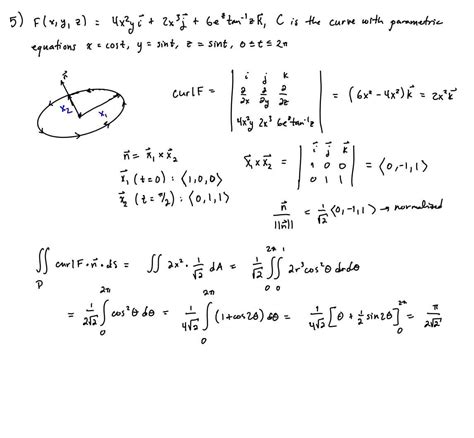 5) F(x,y,z) = 4x²y i⃗ + 2x³ j⃗ + 6e^z tan⁻¹z k⃗, C is the curve with parametric
equations x = cost, y = sint, z = sint, 0 ≤ t ≤ 2π
n⃗
x₂
x₁
curl F = | i j k |
| ∂/∂x ∂/∂y ∂/∂z |
| 4x²y 2x³ 6e^z tan⁻¹z |
= (6x² - 4x²) k⃗ = 2x² k⃗
n⃗ = x⃗₁ × x⃗₂
x⃗₁ (t=0) : ⟨1,0,0⟩
x⃗₂ (t=π/2) : ⟨0,1,1⟩
x⃗₁ × x⃗₂ = | i⃗ j⃗ k⃗ |
| 1 0 0 |
| 0 1 1 |
= ⟨0,-1,1⟩
n⃗/||n⃗|| = 1/√2 ⟨0,-1,1⟩ → normalized
∬_D curl F · n⃗ · ds = ∬ 2x² · 1/√2 dA = 1/√2 ∫₀^2π ∫₀^1 2r³cos²θ drdθ
= 1/2√2 ∫₀^2π cos²θ dθ = 1/4√2 ∫₀^2π (1+cos2θ) dθ = 1/4√2 [θ + 1/2 sin2θ]₀^2π = π/2√2